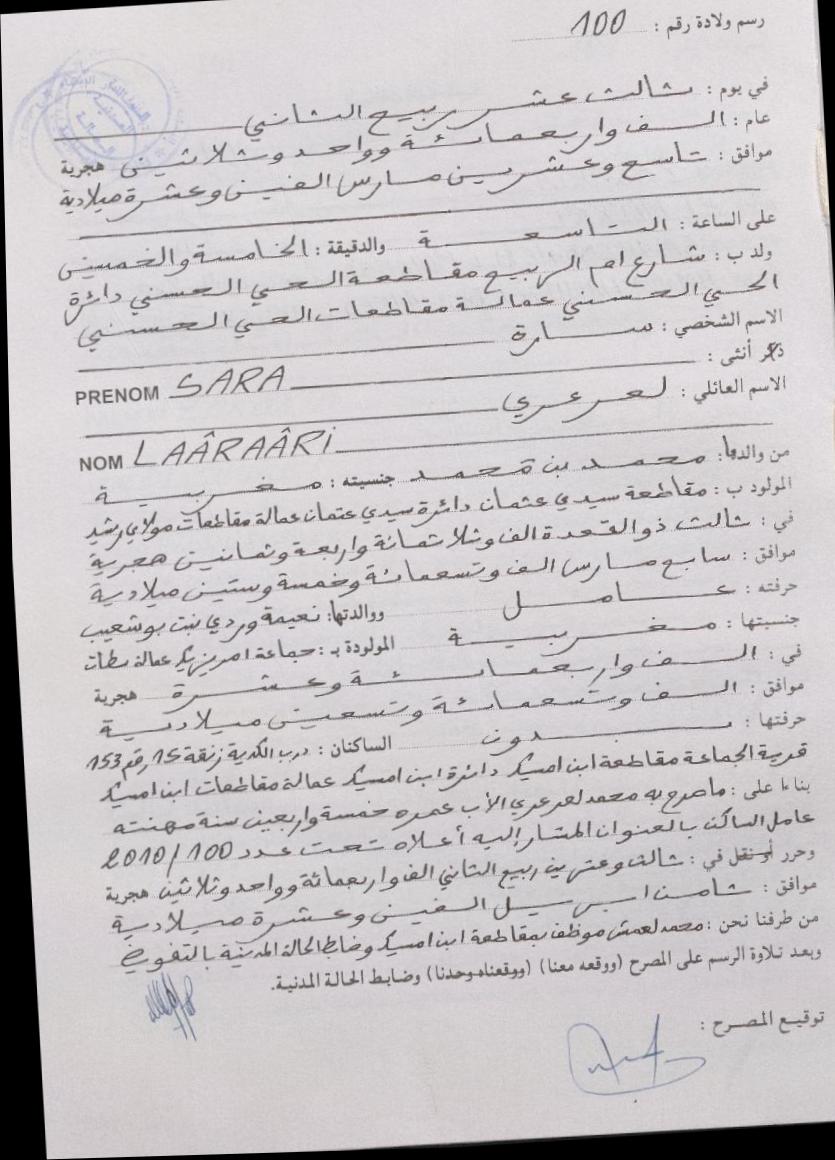 رسم ولادة رقم : 100
في يوم : ثالث عشر ربيع الثاني
عام : الف واربعمائة وواحد وثلاثين هجرية
موافق : تاسع وعشرين مارس الفين وعشرة ميلادية
على الساعة : التاسعة والدقيقة : الخامسة والخمسين
ولد ب : شارع ام الربيع مقاطعة الحي الحسني دائرة
الحي الحسني عمالة مقاطعات الحي الحسني
الاسم الشخصي : سارة
ذكر أنثى :
PRENOM SARA
الاسم العائلي : لعرعري
NOM LAÂRAÂRI
من والدها : محمد بن محمد جنسيته : مغربية
المولود ب : مقاطعة سيدي عثمان دائرة سيدي عثمان عمالة مقاطعات مولاي رشيد
في : ثالث ذو القعدة الف وثلاثمائة واربعة وثمانين هجرية
موافق : سابع مارس الف وتسعمائة وخمسة وستين ميلادية
حرفته : عامل ووالدتها : نعيمة وردي بنت بوشعيب
جنسيتها : مغربية المولودة بـ : جماعة امريزيك عمالة سطات
في : الف واربعمائة وعشرة هجرية
موافق : الف وتسعمائة وتسعين ميلادية
حرفتها : بدون الساكنان : درب الكدية زنقة 15 رقم 153
قرية الجماعة مقاطعة ابن امسيك دائرة ابن امسيك عمالة مقاطعات ابن امسيك
بناءا على : ماصرح به محمد لعرعري الأب عمره خمسة واربعين سنة مهنته
عامل الساكن بالعنوان المشار إليه أعلاه تحت عدد 100/2010
وحرر أو نقل في : ثالث وعشرين ربيع الثاني الف واربعمائة وواحد وثلاثين هجرية
موافق : ثامن ابريل الفين وعشرة ميلادية
من طرفنا نحن : محمد لعمش موظف بمقاطعة ابن امسيك وضابط الحالة المدنية بالتفويض
وبعد تلاوة الرسم على المصرح (ووقعه معنا) (ووقعناه وحدنا) وضابط الحالة المدنية.
توقيع المصرح :